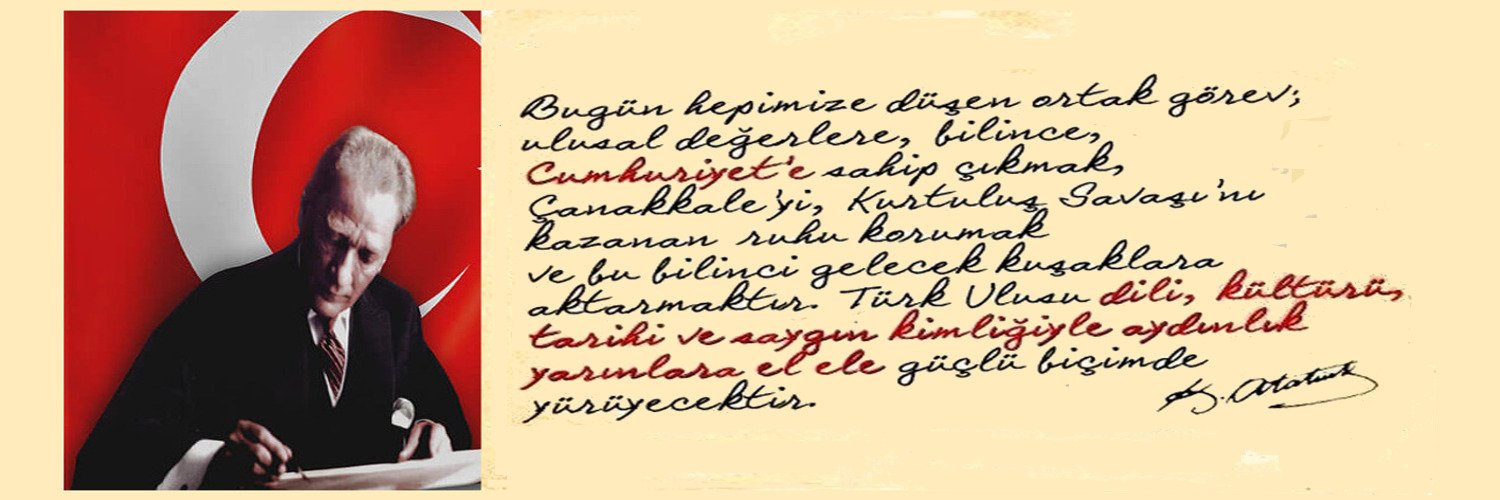 Bugün hepimize düşen ortak görev;
ulusal değerlere, bilince,
Cumhuriyet'e sahip çıkmak,
Çanakkale'yi, Kurtuluş Savaşı'nı
kazanan ruhu korumak
ve bu bilinci gelecek kuşaklara
aktarmaktır. Türk Ulusu dili, kültürü,
tarihi ve saygın kimliğiyle aydınlık
yarınlara el ele güçlü biçimde
yürüyecektir.
K. Atatürk